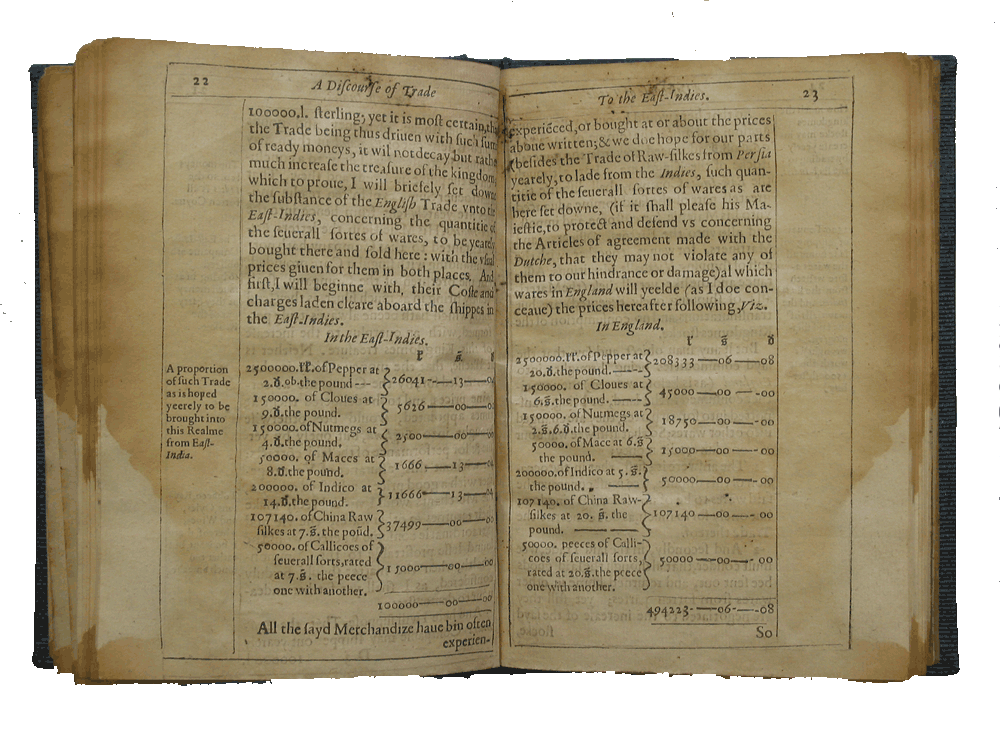 22
A Diſcourſe of Trade
100000.l. ſterling; yet it is moſt certain, that
the Trade being thus driuen with ſuch ſum
of ready moneys, it wil not decay but rathe
much increaſe the treaſure of the kingdom
which to proue, I will briefely ſet downe
the ſubſtance of the Engliſh Trade vnto the
Eaſt-Indies, concerning the quantitie of
the ſeuerall ſortes of wares, to be yearely
bought there and ſold here: with the vſual
prices giuen for them in both places. And
firſt, I will beginne with, their Coſte and
charges laden cleare aboard the ſhippes in
the Eaſt-Indies.
In the Eaſt-Indies.
A proportion
of ſuch Trade
as is hoped
yeerely to be
brought into
this Realme
from Eaſt-
India.
l̃. s̃. d
2500000.l̃l̃. of Pepper at
2.d. ob. the pound --- 26041--13--
150000. of Cloues at
9.d. the pound. 5626--00--00
150000. of Nutmegs at
4.d. the pound. 2500--00--00
50000. of Maces at
8.d. the pound. 1666--13--
200000. of Indico at
14.d. the pound. 11666--13--
107140. of China Raw
ſilkes at 7.s̃. the poũd. 37499--00--00
50000. of Callicoes of
ſeuerall ſorts, rated
at 7.s̃. the peece
one with another. 15000--00--00
100000--00--00
All the ſayd Merchandize haue bin often
experien-
To the Eaſt-Indies.
23
experiẽced, or bought at or about the prices
aboue written; & we doe hope for our parts
(beſides the Trade of Raw-ſilkes from Perſia
yearely, to lade from the Indies, ſuch quan-
titie of the ſeuerall ſortes of wares as are
here ſet downe, (if it ſhall pleaſe his Ma-
ieſtie, to protect and defend vs concerning
the Articles of agreement made with the
Dutche, that they may not violate any of
them to our hindrance or damage) al which
wares in England will yeelde (as I doe con-
ceaue) the prices hereafter following, Viz.
In England.
l̃. s̃ d
2500000.l̃l̃. of Pepper at
20.d. the pound. ---- 208333--06--08
150000. of Cloues at
6.s̃. the pound. ---- 45000--00--00
150000. of Nutmegs at
2.s̃.6.d. the pound. 18750--00--00
50000. of Mace at 6.s̃
the pound. ---- 15000--00--00
200000. of Indico at 5.s̃.
the pound. ---- 50000--00--00
107140. of China Raw-
ſilkes at 20. s̃. the
pound. ---- 107140--00--00
50000. peeces of Calli-
coes of ſeuerall ſorts,
rated at 20.s̃. the peece
one with another. 50000--00--00
494223--06--08
So